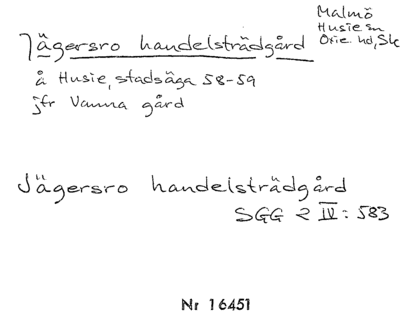 Jägersro handelsträdgård
Malmö
Husie sn
Oxie hd, Sk
å Husie, stadsäga 58-59
jfr Vanna gård
Jägersro handelsträdgård
SGG 2 IV: 583
Nr 16451